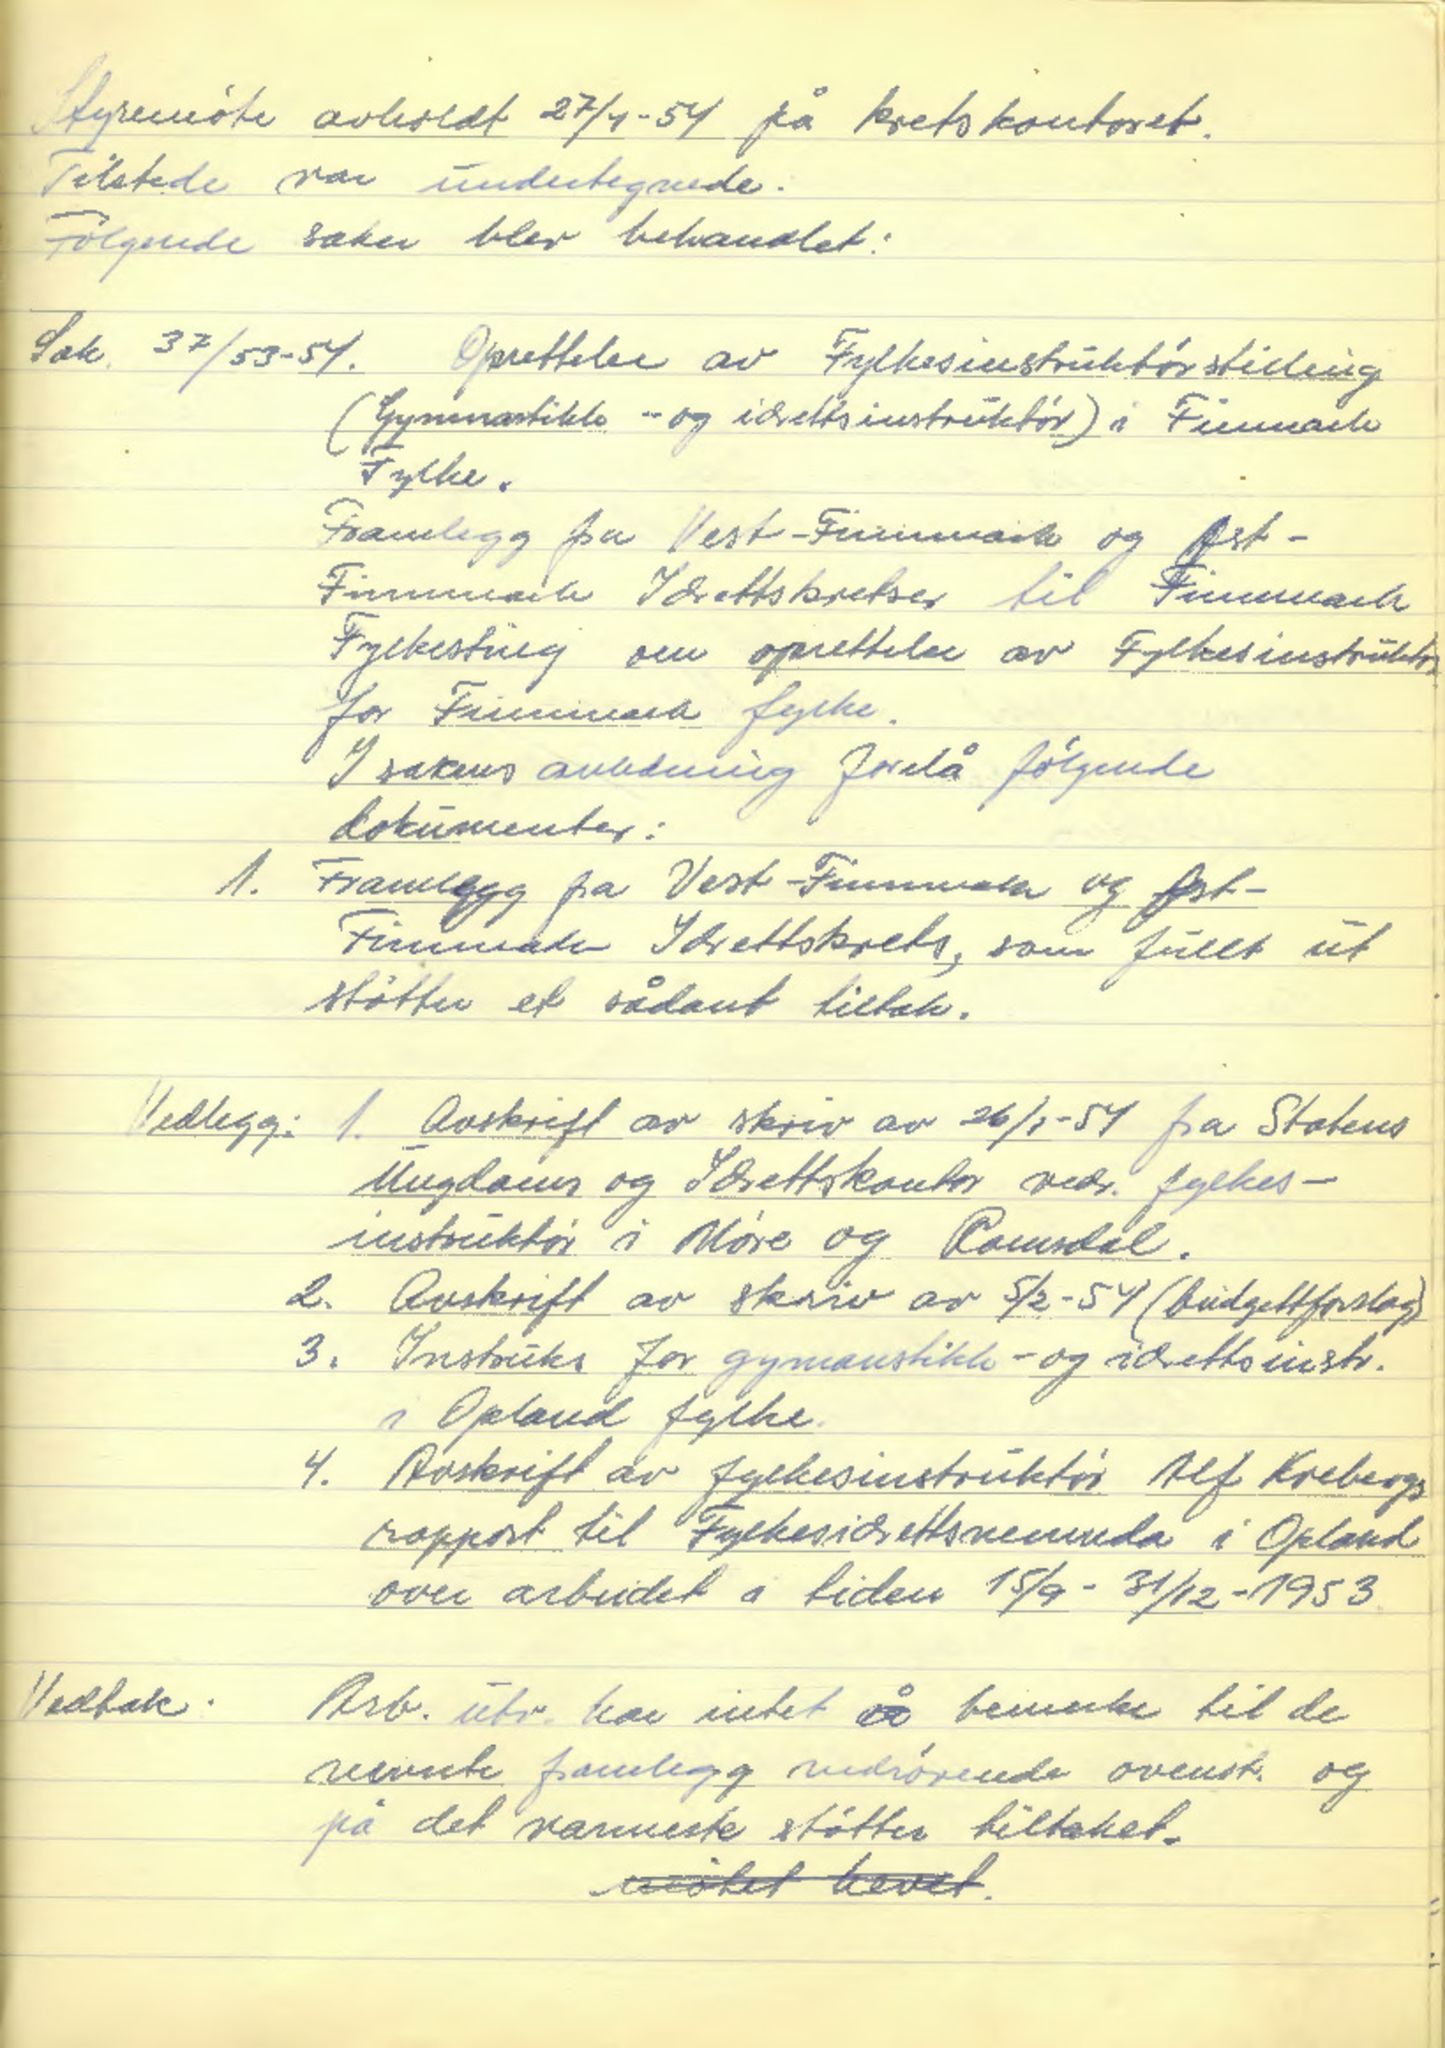 Styremöte avholdt 27/4-54 på kretskontoret.
Tilstede var undertegnede.
Fölgende saker blev behandlet:
Sak. 37/53-54. Oprettelse av Fylkesinstruktörstilling
(Gymnastikk - og idrettsinstruktör) i Finnmark
Fylke.
Framlegg fra Vest-Finnmark og Øst-
Finnmark Idrettskretser til Finnmark
Fylkesting om oprettelse av Fylkesinstruktör
for Finnmark fylke.
I sakens anledning forelå fölgende
dokumenter:
1. Framlegg fra Vest-Finnmark og Øst-
Finnmark Idrettskrets, som fullt ut
stötter et sådant tiltak.
Vedlegg: 1. Avskrift av skriv av 26/1-54 fra Statens
Ungdoms og Idrettskontor vedr. fylkes-
instruktör i Möre og Romsdal.
2. Avskrift av skriv av 5/2-54 (budgettforslag)
3. Instruks for gymanstikk - og idrettsinstr.
i Opland fylke.
4. Avskrift av fylkesinstruktör Alf Krebergs
rapport til Fylkesidrettsnemnda i Opland
over arbeidet i tiden 15/9 - 31/12-1953
Vedtak. Arb. utv. har intet å bemerke til de
nevnte framlegg vedrörende ovenst. og
på det varmeste stötter tiltaket.
mötet hevet.